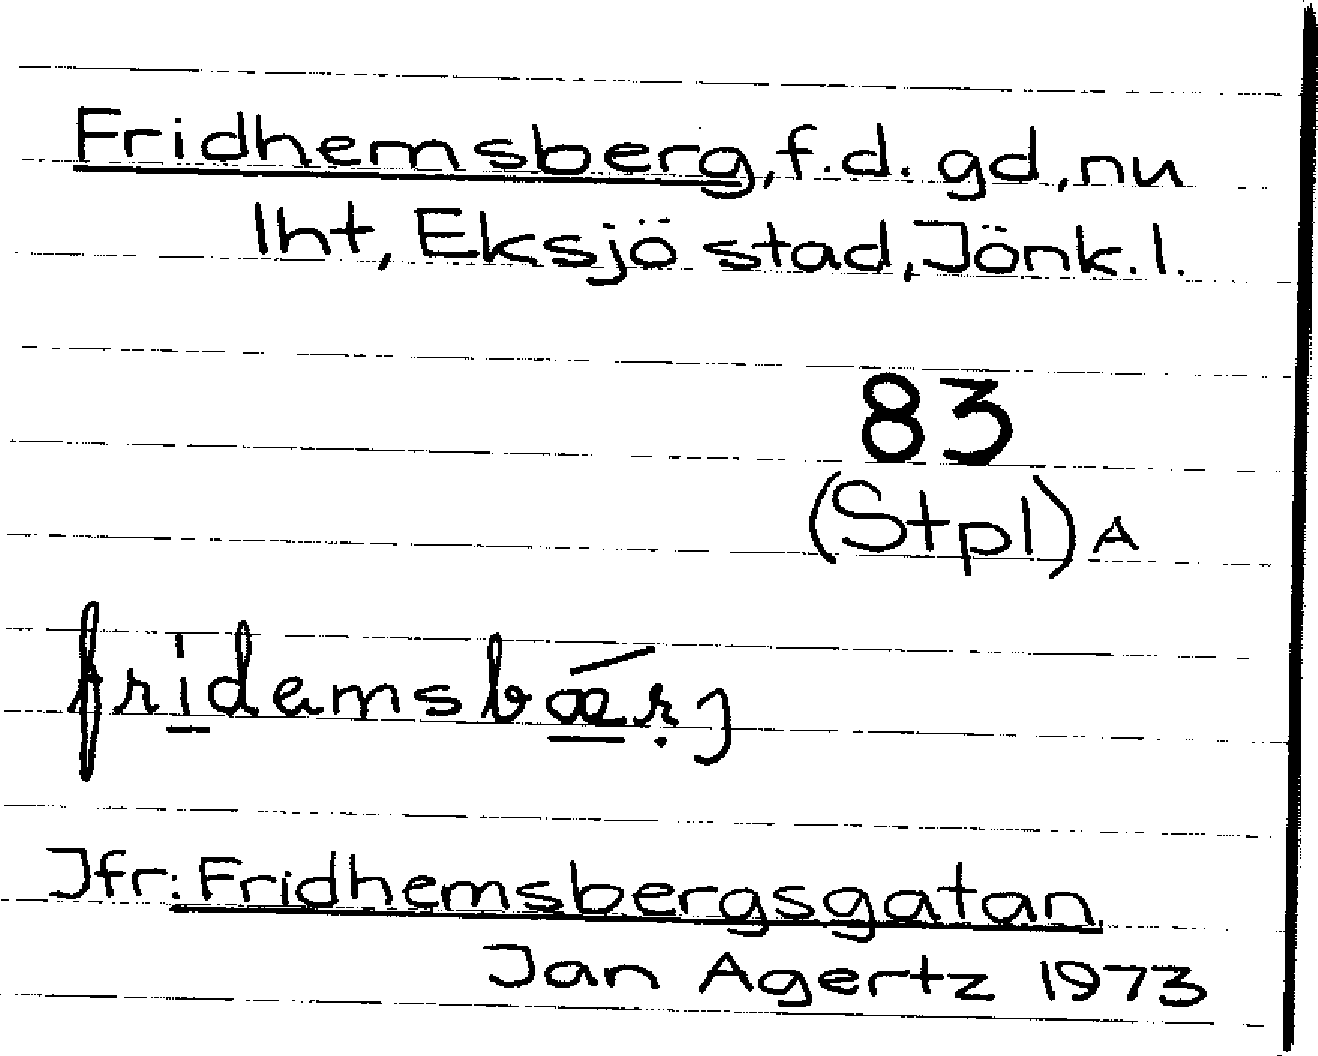 Fridhemsberg, f.d. gd, nu
lht, Eksjö stad, Jönk. l.
83
(Stpl) A
fridemsbǽrj
Jfr: Fridhemsbergsgatan
Jan Agertz 1973